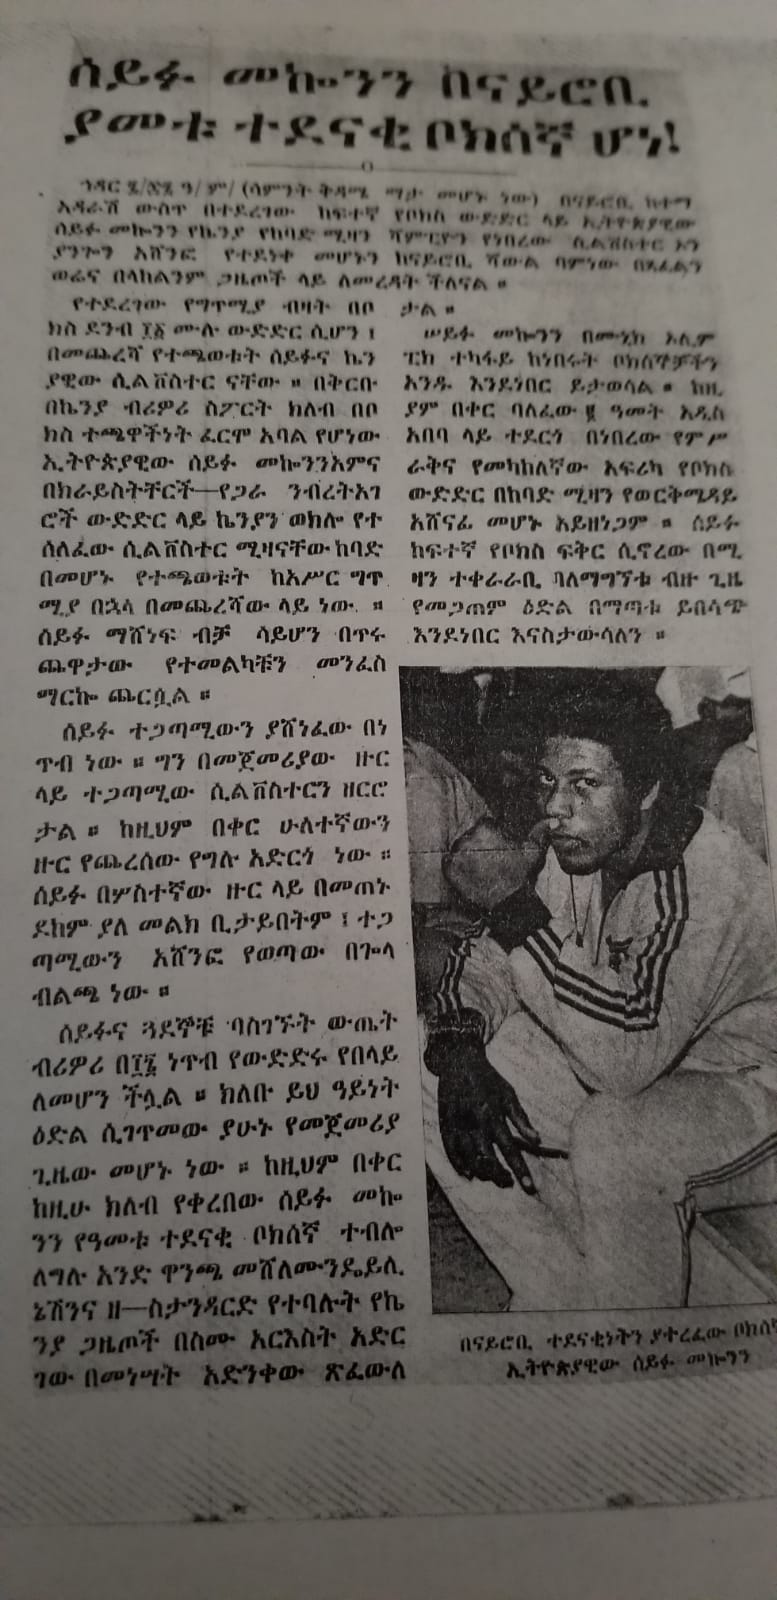 ሰይፉ መኰንን በናይሮቢ
ያመቱ ተደናቂ ቦክሰኛ ሆነ!
ኅዳር ዓ/ ም/ (ሳምንት ቅዳሜ ማታ መሆኑ ነው) በናይሮቢ ከተማ
አዳራሽ ውስጥ በተደረገው ከፍተኛ የቦክስ ውድድር ላይ ኢትዮጵያዊው
ሰይፉ መኰንን የኬንያ የከባድ ሚዛን ሻምፒዮን የነበረው ሲልቨስተር
ያንጐን አሸንፎ የተደነቀ መሆኑን ከናይሮቢ ሻውል ባምነው በጻፈልን
ወሬና በላከልንም ጋዜጦች ላይ ለመረዳት ችለናል ።
የተደረገው የግጥሚያ ብዛት በቦ
ክስ ደንብ ፲፩ ሙሉ ውድድር ሲሆን ፤
በመጨረሻ የተጫወቱት ሰይፉና ኬን
ያዊው ሲልቨስተር ናቸው ። በቅርቡ
በኬንያ ብሪዎሪ ስፖርት ክለብ በቦ
ክስ ተጫዋችነት ፈርሞ አባል የሆነው
ኢትዮጵያዊው ሰይፉ መኰንንአምና
በክራይስትቸርች—የጋራ ንብረትአገ
ሮች ውድድር ላይ ኬንያን ወክሎ የተ
ሰለፈው ሲልቨስተር ሚዛናቸው ከባድ
በመሆኑ የተጫወቱት ከአሥር ግጥ
ሚያ በኋላ በመጨረሻው ላይ ነው ።
ሰይፉ ማሸነፍ ብቻ ሳይሆን በጥሩ
ጨዋታው የተመልካቹን መንፈስ
ማርኰ ጨርሷል ።
ሰይፉ ተጋጣሚውን ያሸነፈው በነ
ጥብ ነው ። ግን በመጀመሪያው ዙር
ላይ ተጋጣሚው ሲልቨስተርን ዘርሮ
ታል ። ከዚህም በቀር ሁለተኛውን
ዙር የጨረሰው የግሉ አድርጎ ነው ።
ሰይፉ በሦስተኛው ዙር ላይ በመጠኑ
ደከም ያለ መልክ ቢታይበትም ፤ ተጋ
ጣሚውን አሸንፎ የወጣው በጐላ
ብልጫ ነው ።
ሰይፉና ጓደኞቹ ባስገኙት ውጤት
ብሪዎሪ በ፲፯ ነጥብ የውድድሩ የበላይ
ለመሆን ችሏል ። ክለቡ ይህ ዓይነት
ዕድል ሲገጥመው ያሁኑ የመጀመሪያ
ጊዜው መሆኑ ነው ። ከዚህም በቀር
ከዚሁ ክለብ የቀረበው ሰይፉ መኰ
ንን የዓመቱ ተደናቂ ቦክሰኛ ተብሎ
ለግሉ አንድ ዋንጫ መሸለሙንዴይሊ
ኔሽንና ዘ—ስታንዳርድ የተባሉት የኬ
ንያ ጋዜጦች በስሙ አርእስት አድር
ገው በመነሣት አድንቀው ጽፈውለ
ታል ።
ሠይፉ መኰንን በሙኒክ ኦሊም
ፒክ ተካፋይ ከነበሩት ቦክሰኞቻችን
አንዱ እንደነበር ይታወሳል ። ከዚ
ያም በቀር ባለፈው ዓመት አዲስ
አበባ ላይ ተደርጎ በነበረው የምሥ
ራቅና የመካከለኛው አፍሪካ የቦክስ
ውድድር በከባድ ሚዛን የወርቅሜዳይ
አሸናፊ መሆኑ አይዘነጋም ። ሰይፉ
ከፍተኛ የቦክስ ፍቅር ሲኖረው በሚ
ዛን ተቀራራቢ ባለማግኘቱ ብዙ ጊዜ
የመጋጠም ዕድል በማጣቱ ይበሳጭ
እንደነበር እናስታውሳለን ።
በናይሮቢ ተደናቂነትን ያተረፈው
ኢትዮጵያዊው ሰይፉ መኰንን